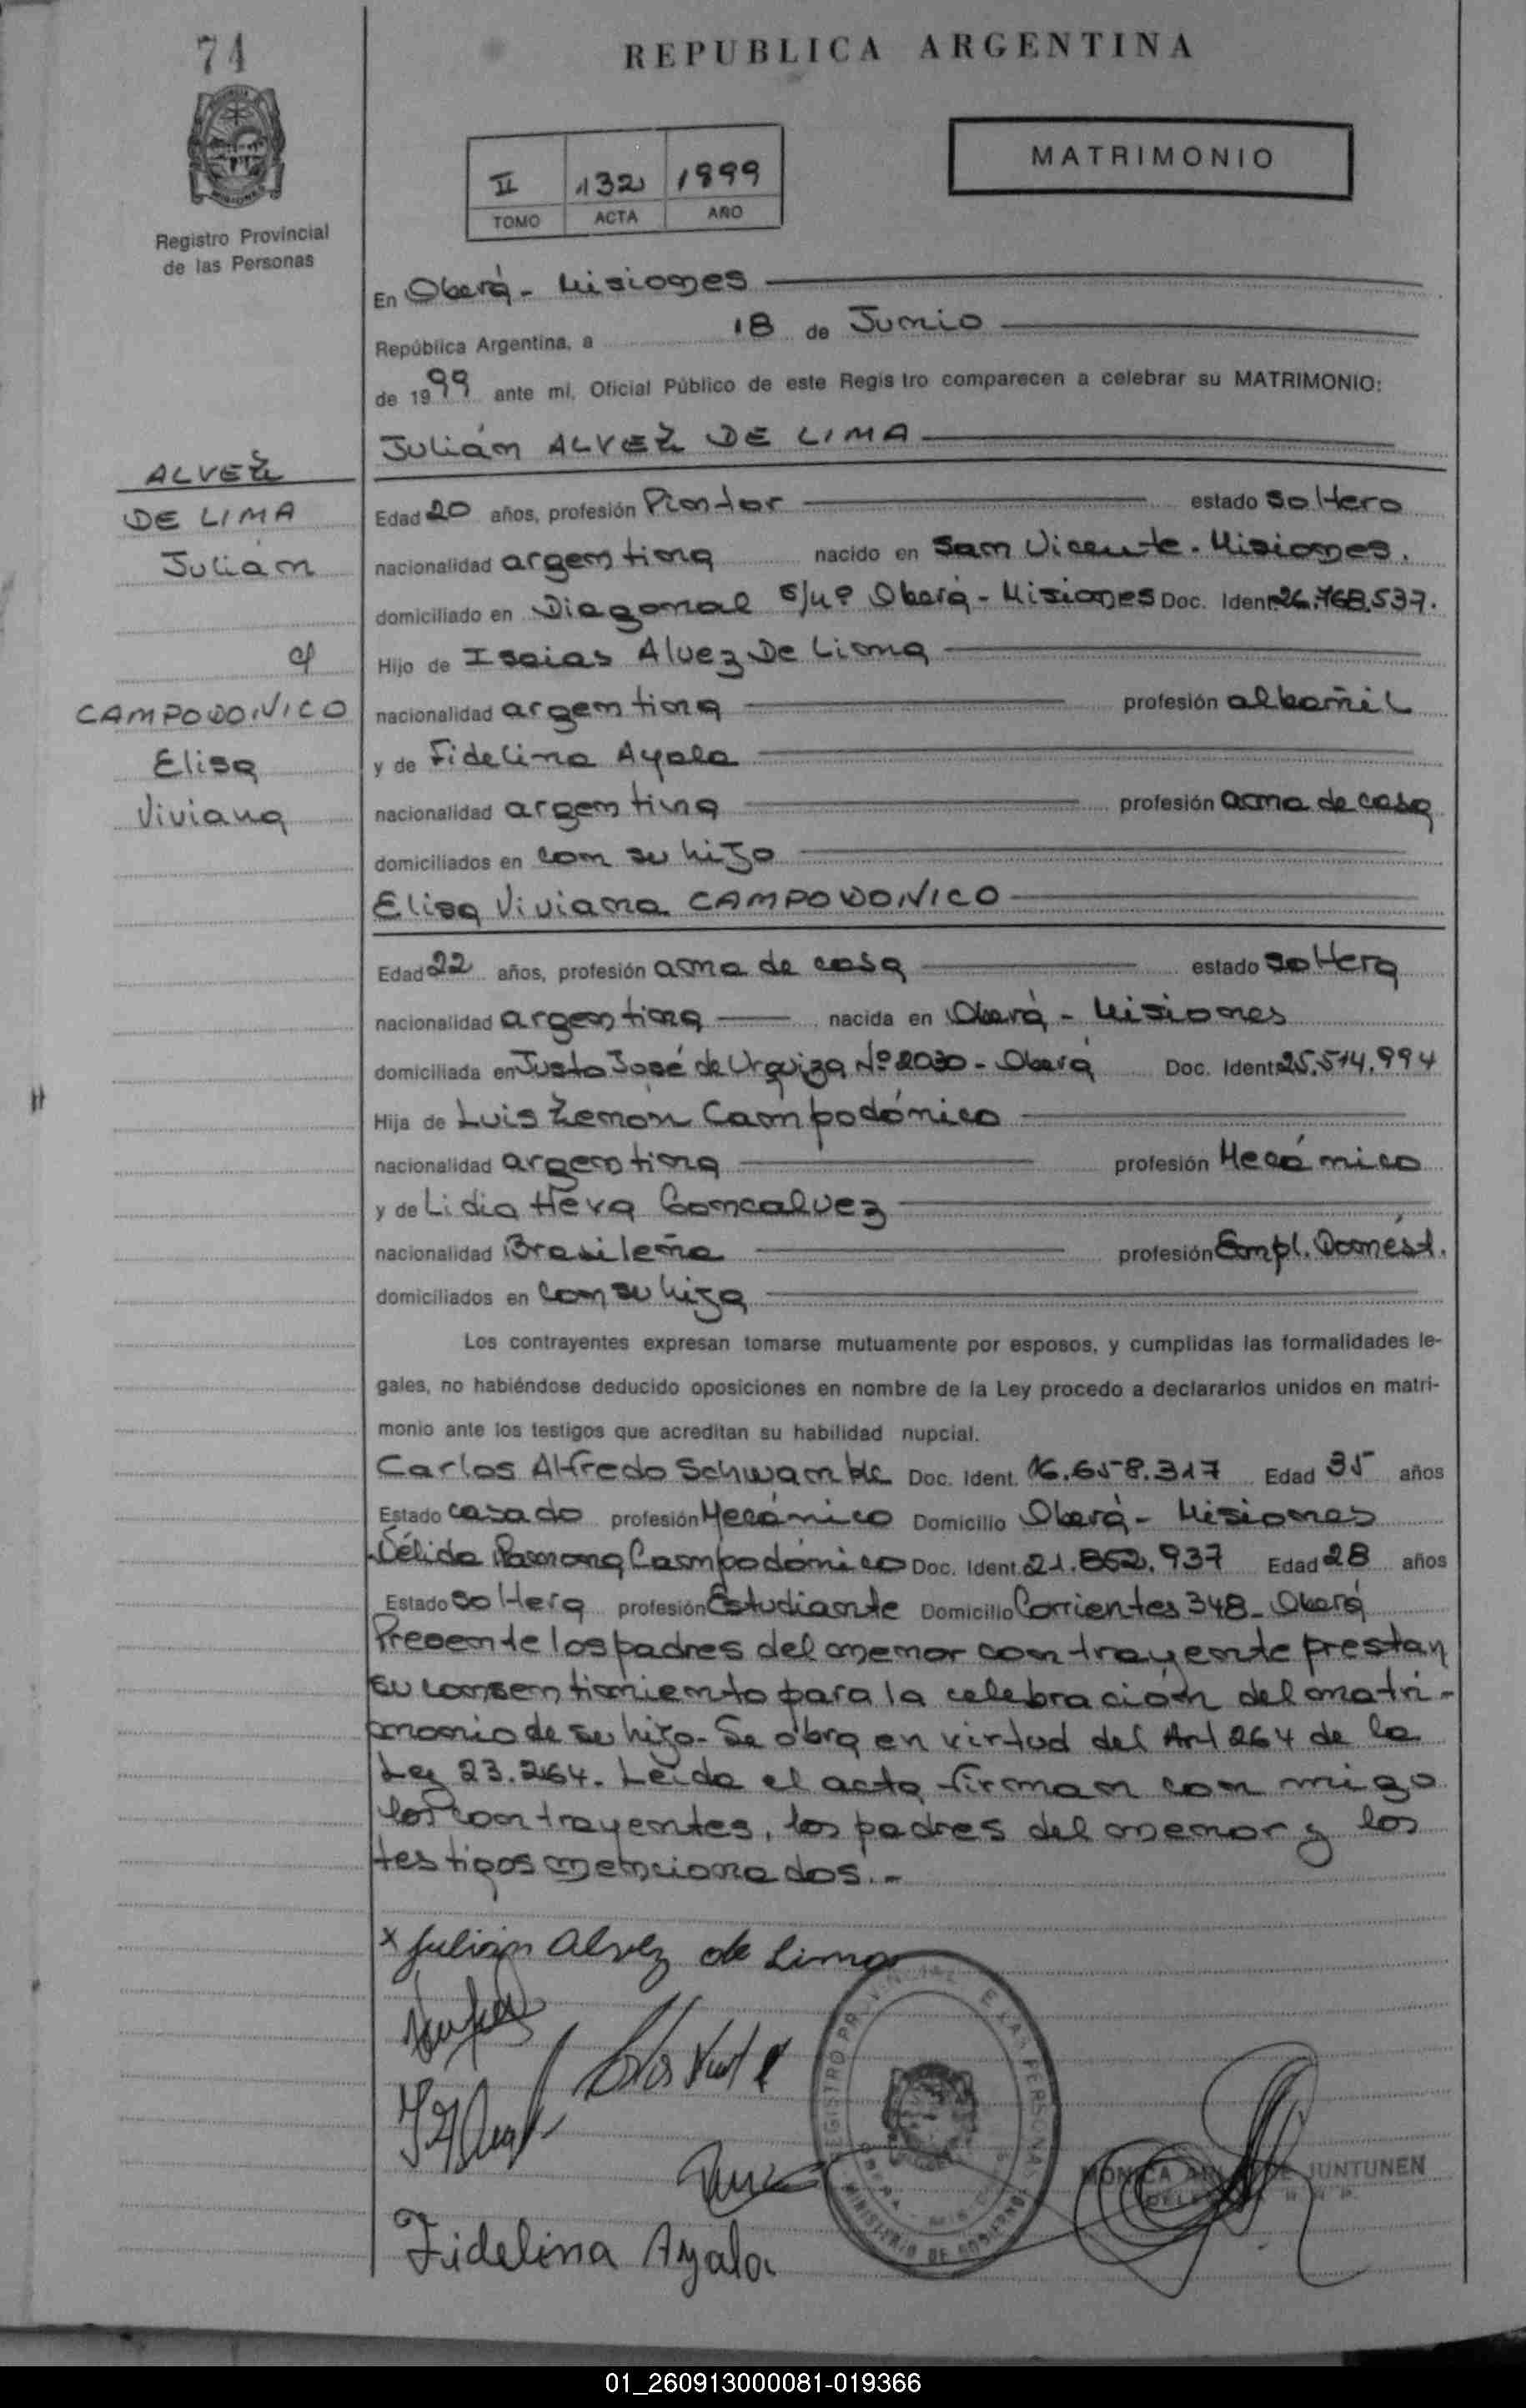 74
REPUBLICA ARGENTINA
MATRIMONIO
II 132 1999
TOMO ACTA AÑO
Registro Provincial
de las Personas
En Oberá - Misiones
República Argentina, a 18 de Junio
de 1999 ante mi, Oficial Público de este Regis tro comparecen a celebrar su MATRIMONIO:
Julián ALVEZ DE LIMA
ALVEZ
DE LIMA
Julián
c/
CAMPODONICO
Elisa
Viviana
Edad 20 años, profesión Pintor estado soltero
nacionalidad argentina nacido en San Vicente - Misiones.
domiciliado en Diagonal s/nº Oberá - Misiones Doc. Ident 26.768.537.
Hijo de Isaias Alvez De Lima
nacionalidad argentina profesión albañil
y de Fidelina Ayala
nacionalidad argentina profesión ama de casa
domiciliados en con su hijo
Elisa Viviana CAMPODONICO
Edad 22 años, profesión ama de casa estado soltera
nacionalidad argentina nacida en Oberá - Misiones
domiciliada en Justo José de Urquiza Nº 2030 - Oberá Doc. Ident 25.514.994
Hija de Luis Zenón Campodónico
nacionalidad argentina profesión Mecánico
y de Lidia Heva Goncalvez
nacionalidad Brasileña profesión Empl. Domést.
domiciliados en con su hija
Los contrayentes expresan tomarse mutuamente por esposos, y cumplidas las formalidades le-
gales, no habiéndose deducido oposiciones en nombre de la Ley procedo a declararlos unidos en matri-
monio ante los testigos que acreditan su habilidad nupcial.
Carlos Alfredo Doc. Ident. 16.658.317 Edad 35 años
Estado casado profesión Mecánico Domicilio Oberá - Misiones
Délida Ramona Campodónico Doc. Ident. 21.852.937 Edad 28 años
Estado soltera profesión Estudiante Domicilio Corrientes 348 - Oberá
Presente los padres del menor contrayente prestan
su consentimiento para la celebración del matri-
monio de su hijo - Se obra en virtud del Art 264 de la
Ley 23.264. Leída el acta firman con migo
los contrayentes, los padres del menor y los
testigos mencionados.-
x Julián Alvez de Lima
REGISTRO PROVINCIAL DE LAS PERSONAS
MINISTERIO DE GOBIERNO
MONICA DE JUNTUNEN
Fidelina Ayala
01_260913000081-019366